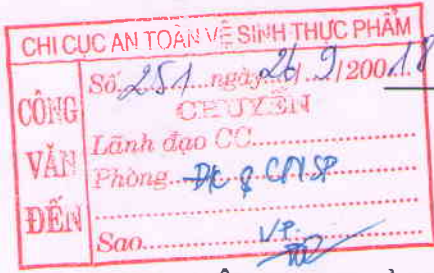 CHI CỤC AN TOÀN VỆ SINH THỰC PHẨM
CÔNG VĂN ĐẾN
Số 251 ngày 26/9/2018
CHUYỂN
Lãnh đạo CC
Phòng ĐK & CNSP
Sao V.P.